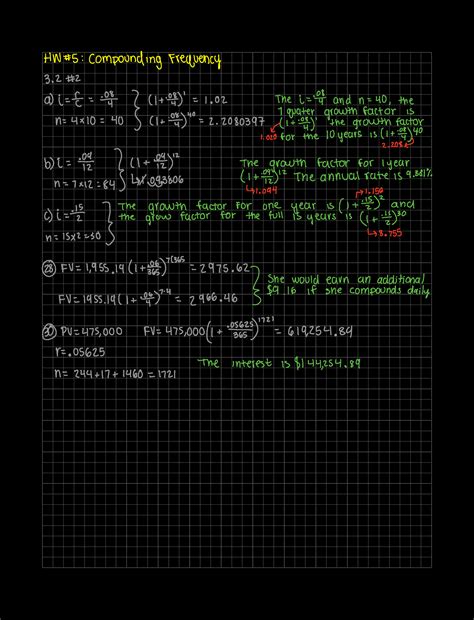 HW #5: Compounding Frequency
3.2 #2
a) i = r/c = .08/4 } (1+.08/4)^1 = 1.02
n = 4×10 = 40 } (1+.08/4)^40 = 2.2080397
The i = .08/4 and n = 40, the
1 quater growth factor is
(1+.08/4)^1 the growth factor
1.020 for the 10 years is (1+.08/4)^40
2.208
b) i = .09/12 } (1+.09/12)^12
n = 7×12 = 84 } ↳ 1.093806
The growth factor for 1 year
(1+.09/12)^12 The annual rate is 9.381%
↳ 1.094
c) i = .15/2
n = 15×2 = 30
1.156
The growth factor for one year is (1+.15/2)^2 and
the grow factor for the full 15 years is (1+.15/2)^30
↳ 8.755
28) FV = 1,955.19(1+.06/365)^7(365 = 2975.62
FV = 1955.19(1+.06/4)^7·4 = 2966.46
She would earn an additional
$9.16 if she compounds daily
30) PV = 475,000 FV = 475,000(1+.05625/365)^1721 = 619,254.89
r = .05625
n = 244+17+1460 = 1721
The interest is $144,254.89